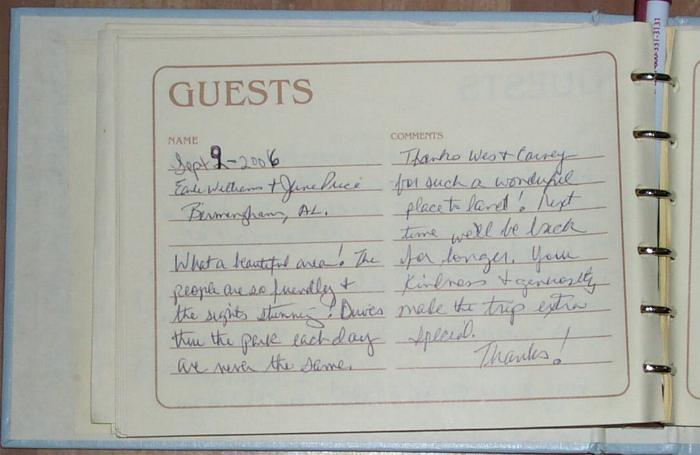 GUESTS
NAME
Sept 9-2006
Earle Williams + Jane Price
Birmingham, AL.
What a beautiful area! The
people are so friendly +
the sights stunning! Drives
thru the park each day
are never the same.
COMMENTS
Thanks Wes + Carey
for such a wonderful
place to land! Next
time we'll be back
for longer. Your
kindness + generosity
made the trip extra
special.
Thanks!